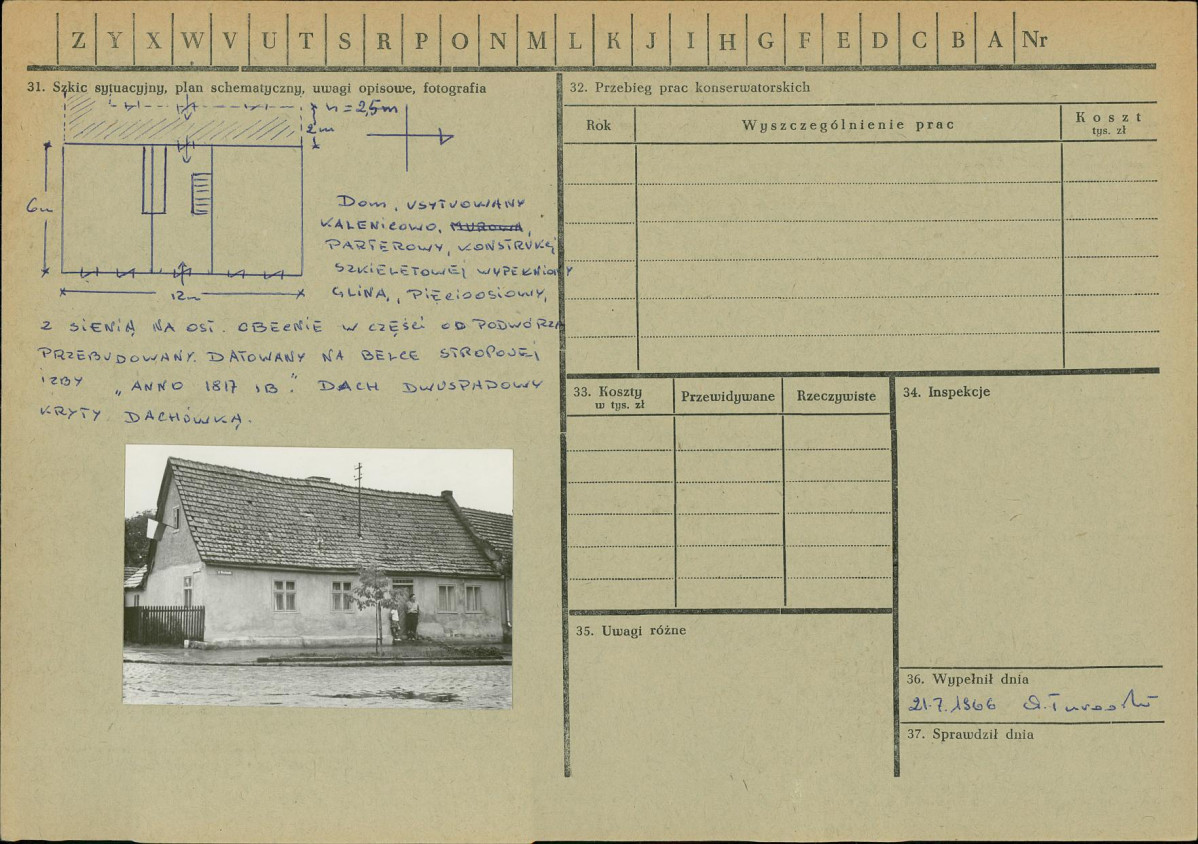 Z Y X W V U T S R P O N M L K J I H G F E D C B A Nr
31. Szkic sytuacyjny, plan schematyczny, uwagi opisowe, fotografia
h = 2,5m
2m
6m
12m
DOM, USYTUOWANY
KALENICOWO, MUROWA,
PARTEROWY, KONSTRUKCJ
SZKIELETOWEJ WYPEŁNIONY
GLINĄ, PIĘCIOOSIOWY,
Z SIENIĄ NA OSI. OBECNIE W CZĘŚCI OD PODWÓRZA
PRZEBUDOWANY. DATOWANY NA BELCE STROPOWEJ
IZBY „ANNO 1817 IB." DACH DWUSPADOWY
KRYTY DACHÓWKĄ.
32. Przebieg prac konserwatorskich
Rok
Wyszczególnienie prac
Koszt
tys. zł
33. Koszty
w tys. zł
Przewidywane
Rzeczywiste
34. Inspekcje
35. Uwagi różne
36. Wypełnił dnia
21.7.1966
37. Sprawdził dnia